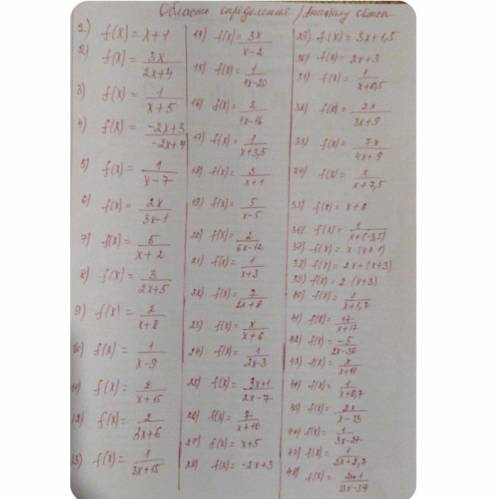 Области определения / Анықталу облысы
1) f(x) = x+1
2) f(x) = 3x/(2x+4)
3) f(x) = 1/(x+5)
4) f(x) = (-2x+3)/(-2x+4)
5) f(x) = 1/(x-7)
6) f(x) = 2x/(3x-1)
7) f(x) = 5/(x+2)
8) f(x) = 3/(2x+5)
9) f(x) = 2/(x+8)
10) f(x) = 1/(x-9)
11) f(x) = 2/(x+15)
12) f(x) = 2/(3x+6)
13) f(x) = 1/(3x+15)
14) f(x) = 3x/(x-2)
15) f(x) = 1/(4x-20)
16) f(x) = 2/(4x-16)
17) f(x) = 1/(x+3,5)
18) f(x) = 3/(x+1)
19) f(x) = 5/(x-5)
20) f(x) = 2/(6x-12)
21) f(x) = 1/(x+3)
22) f(x) = 2/(2x+8)
23) f(x) = x/(x+6)
24) f(x) = 1/(2x-3)
25) f(x) = (3x+1)/(2x-7)
26) f(x) = 7/(x+10)
27) f(x) = x+5
28) f(x) = -2x+3
29) f(x) = 3x+1,5
30) f(x) = 2x+3
31) f(x) = 1/(x+0,5)
32) f(x) = 2x/(3x+9)
33) f(x) = 7x/(4x+9)
34) f(x) = x/(x+7,5)
35) f(x) = x+8
36) f(x) = 1/(x+(-3,5))
37) f(x) = x(x+1)
38) f(x) = 2x+(x+3)
39) f(x) = 2(x+3)
40) f(x) = 1/(x+1,2)
41) f(x) = 17/(x+17)
42) f(x) = -5/(2x-38)
43) f(x) = 2/(x+11)
44) f(x) = 1/(x+0,7)
45) f(x) = 2x/(x-13)
46) f(x) = 1/(3x-27)
47) f(x) = 1/(3x+2,7)
48) f(x) =